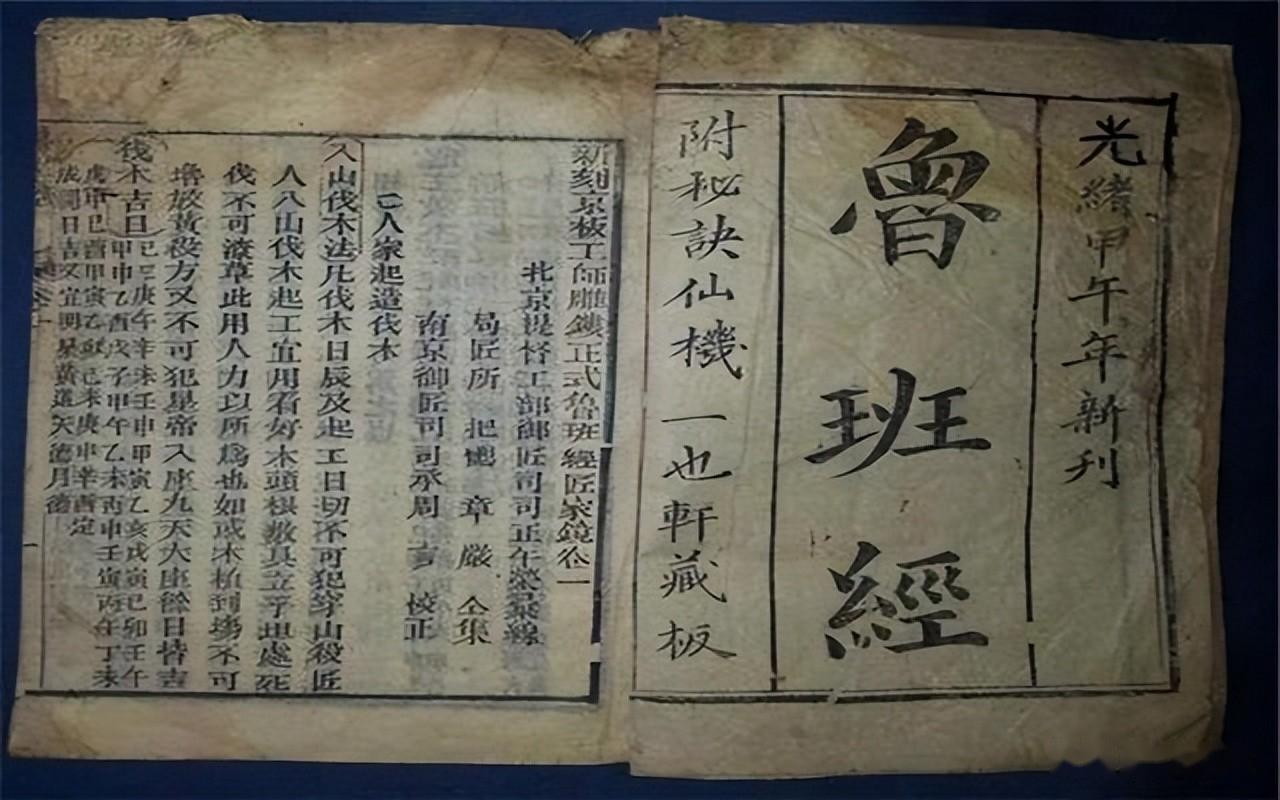 光緒甲午年新刊
魯班經
附秘訣仙機一也軒藏板
新刻京板工師雕鏤正式魯班經匠家鏡卷一
北京提督工部御匠司司正午榮彙線
局匠所把總章嚴仝集
南京御匠司司承周言校正
人家起造伐木
入山伐木法凡伐木日辰及起工日切不可犯穿山殺匠
人入山伐木起工宜用看好木頭根數具立平坦處
伐不可潦草此用人力以所爲也如或木植到塲不可
堆放黃殺方又不可犯皇帝入座九天大座餘日皆吉
伐木吉日己巳庚午辛未壬申甲寅乙亥戊寅己卯壬午
甲申乙酉戊子甲午乙未丙申壬寅丙午丁未
甲寅乙卯己未庚申辛酉定
成開日吉又宜明星黃道天德月德